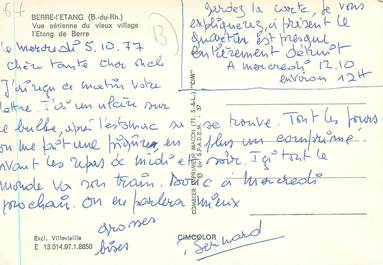 67
BERRE-L'ETANG (B.-du-Rh.)
Vue aérienne du vieux village
l'Etang de Berre
B
gardez la carte, je vous
expliquerez, à présent le
quartier est presque
entièrement détruit
A mercredi 12.10
environ 12H
le mercredi 5.10.77
Chère tante cher oncle
J'ai reçu ce matin votre
lettre. J'ai un ulcère sur
le bulbe, après l'estomac
on me fait une piqûre en
avant les repas de midi et soir. Ici tout le
se trouve. Tout les jours
plus un comprimé
monde va son train. Donc à mercredi
prochain. On en parlera mieux
grosses
bises
Bernard
"CIM"
COMBIER IMPRIMEUR MACON (71. S.-&-L.)
S.P.A.D.E.M.
Excl. Villevieille
E 13.014.97.1.8850
CIMCOLOR